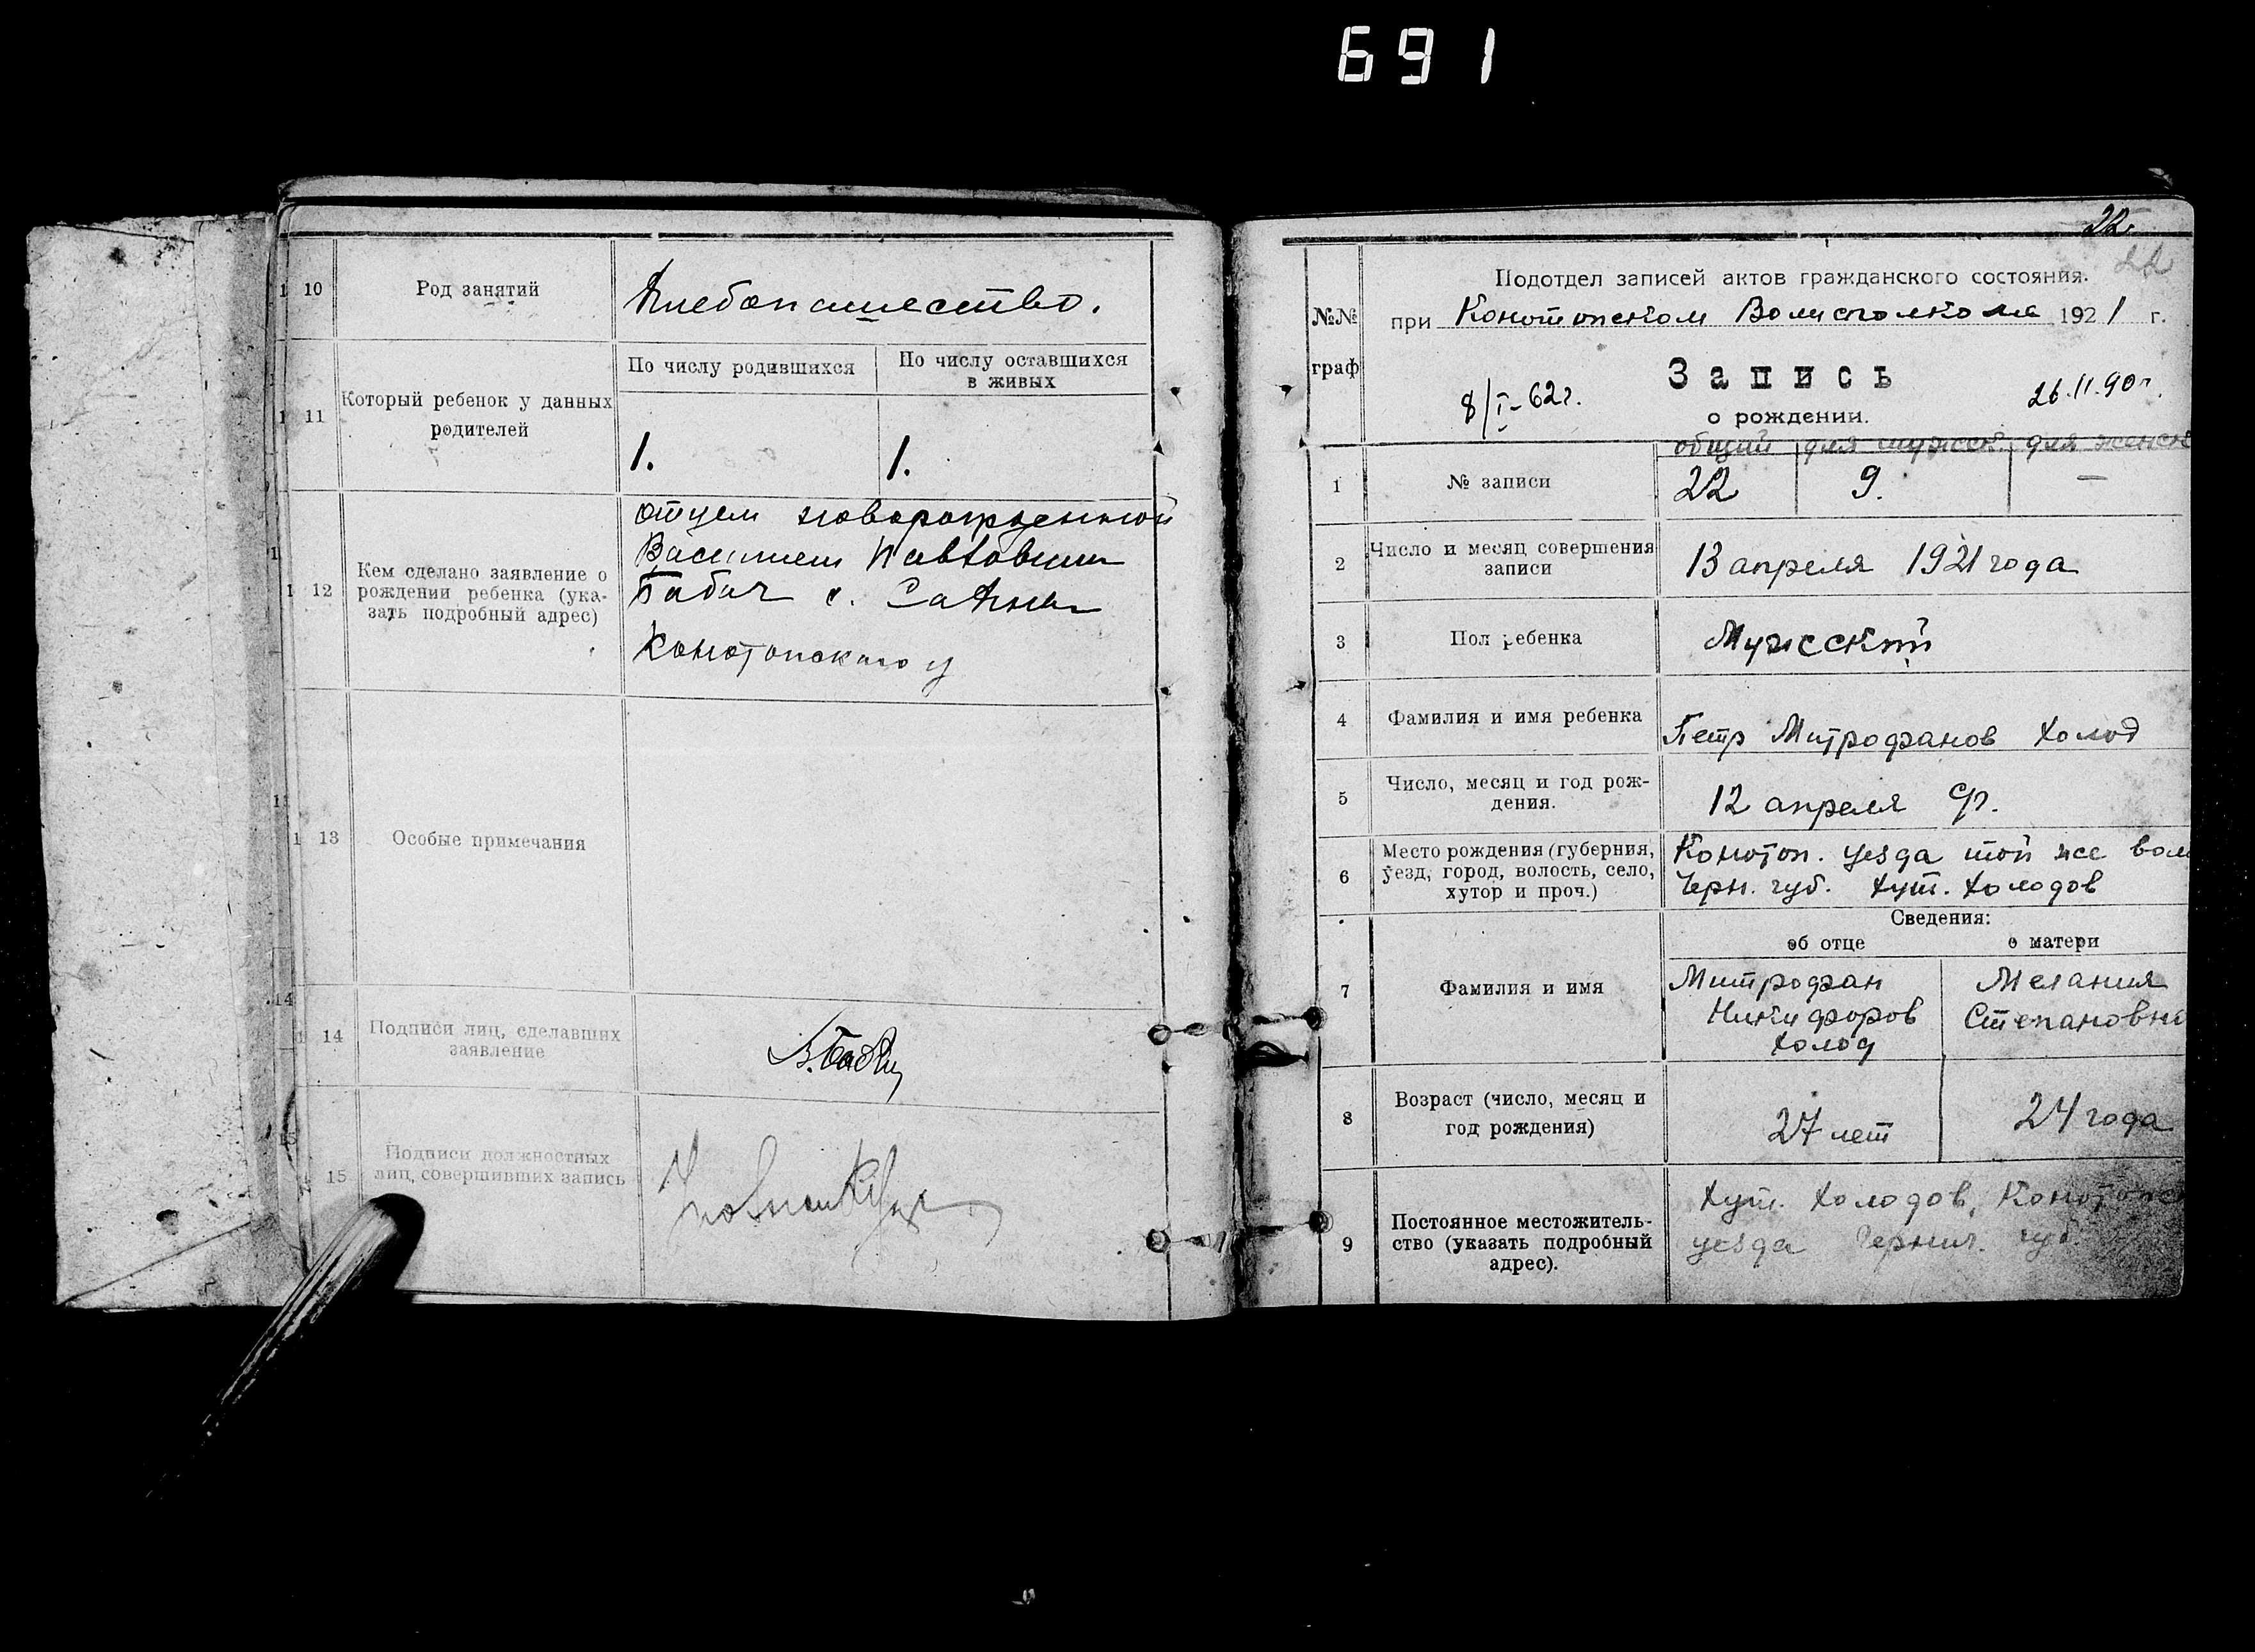 691
10 Род занятий
Хлебопашество.
11 Который ребенок у данных
родителей
По числу родившихся
По числу оставшихся
в живых
1.
1.
12 Кем сделано заявление о
рождении ребенка (ука-
зать подробный адрес)
отцем новорожденной
Василием Павловым
Бабич с.
Конотопского у
13 Особые примечания
14 Подписи лиц, сделавших
заявление
В. Бабич
15 Подписи должностных
лиц, совершивших запись
22.
22
№№
граф
Подотдел записей актов гражданского состояния.
при Конотопском Волисполкоме 1921 г.
Запись
о рождении.
8/I-62г.
26.11.90г.
общий для мужск. для женск
1 № записи
22 9. —
2 Число и месяц совершения
записи
13 апреля 1921 года
3 Пол ребенка
Мужской
4 Фамилия и имя ребенка
Петр Митрофанов Холод
5 Число, месяц и год рож-
дения.
12 апреля
6 Место рождения (губерния,
уезд, город, волость, село,
хутор и проч.)
Конотоп. уезда той же вол
Черн. губ. хут. Холодов
Сведения:
об отце
о матери
7 Фамилия и имя
Митрофан
Никифоров
Холод
Мелания
Степановна
8 Возраст (число, месяц и
год рождения)
27 лет
24 года
9 Постоянное местожитель-
ство (указать подробный
адрес).
хут. Холодов, Конотопск
уезда Черниг. губ.